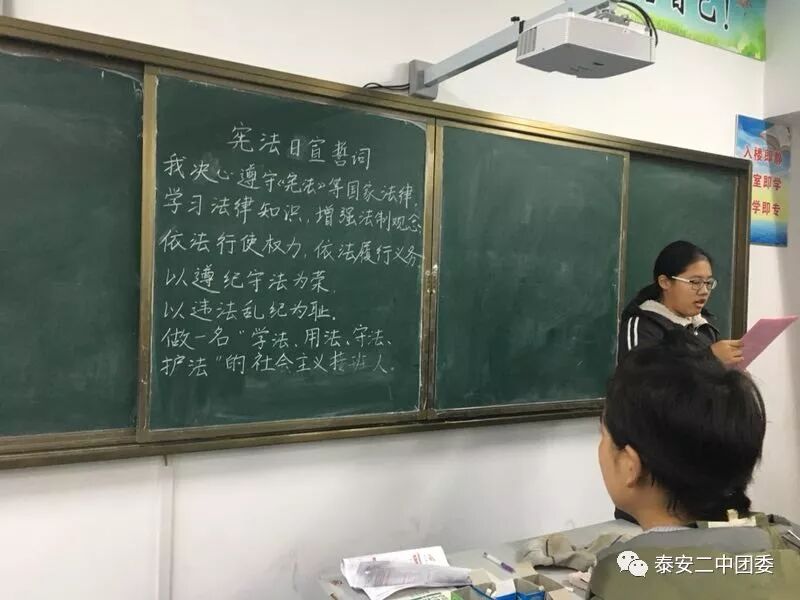 自己!
宪法日宣誓词
我决心遵守《宪法》等国家法律,
学习法律知识,增强法制观念
依法行使权力,依法履行义务
以遵纪守法为荣,
以违法乱纪为耻.
做一名“学法、用法、守法、
护法”的社会主义接班人.
入楼即静
室即学
学即专
泰安二中团委